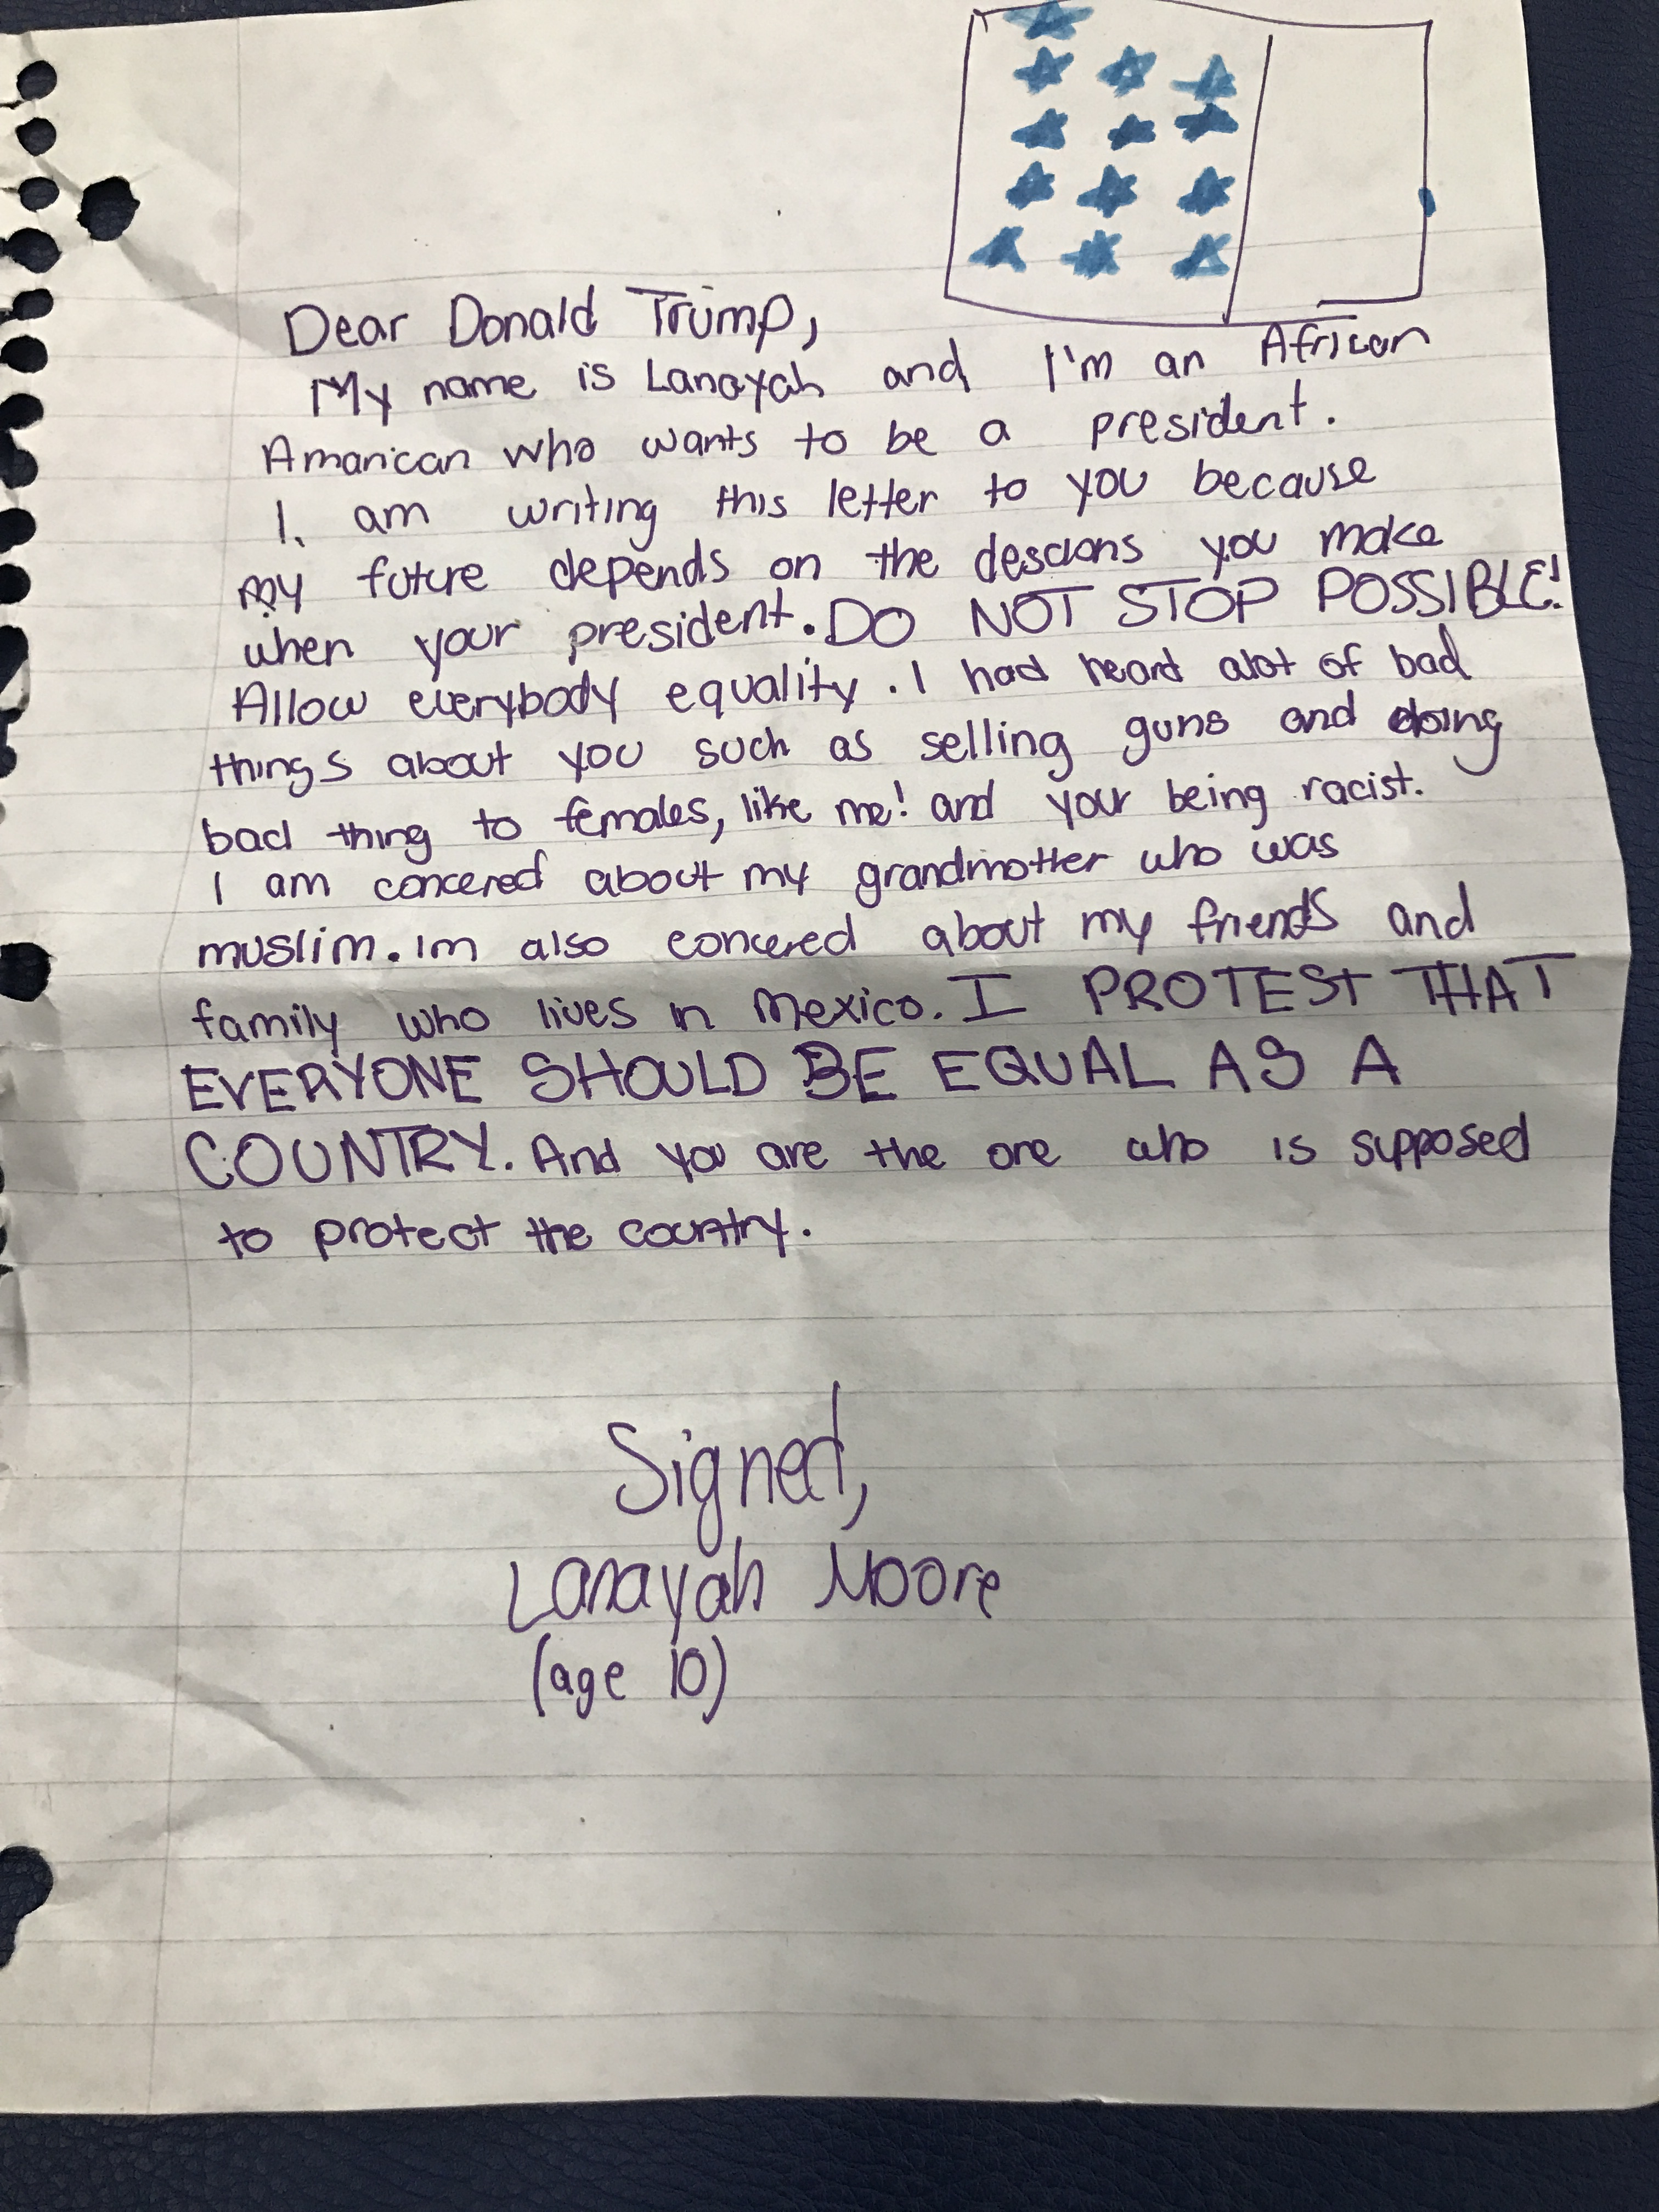 Dear Donald Trump,
My name is Lanayah and I'm an African
Amarican who wants to be a president.
I am writing this letter to you because
my future depends on the descions you make
when your president. DO NOT STOP POSSIBLE!
Allow everybody equality. I had heard alot of bad
things about you such as selling guns and doing
bad thing to females, like me! and your being racist.
I am concered about my grandmother who was
muslim. Im also concered about my friends and
family who lives in Mexico. I PROTEST THAT
EVERYONE SHOULD BE EQUAL AS A
COUNTRY. And you are the one who is supposed
to protect the country.
Signed,
Lanayah Moore
(age 10)